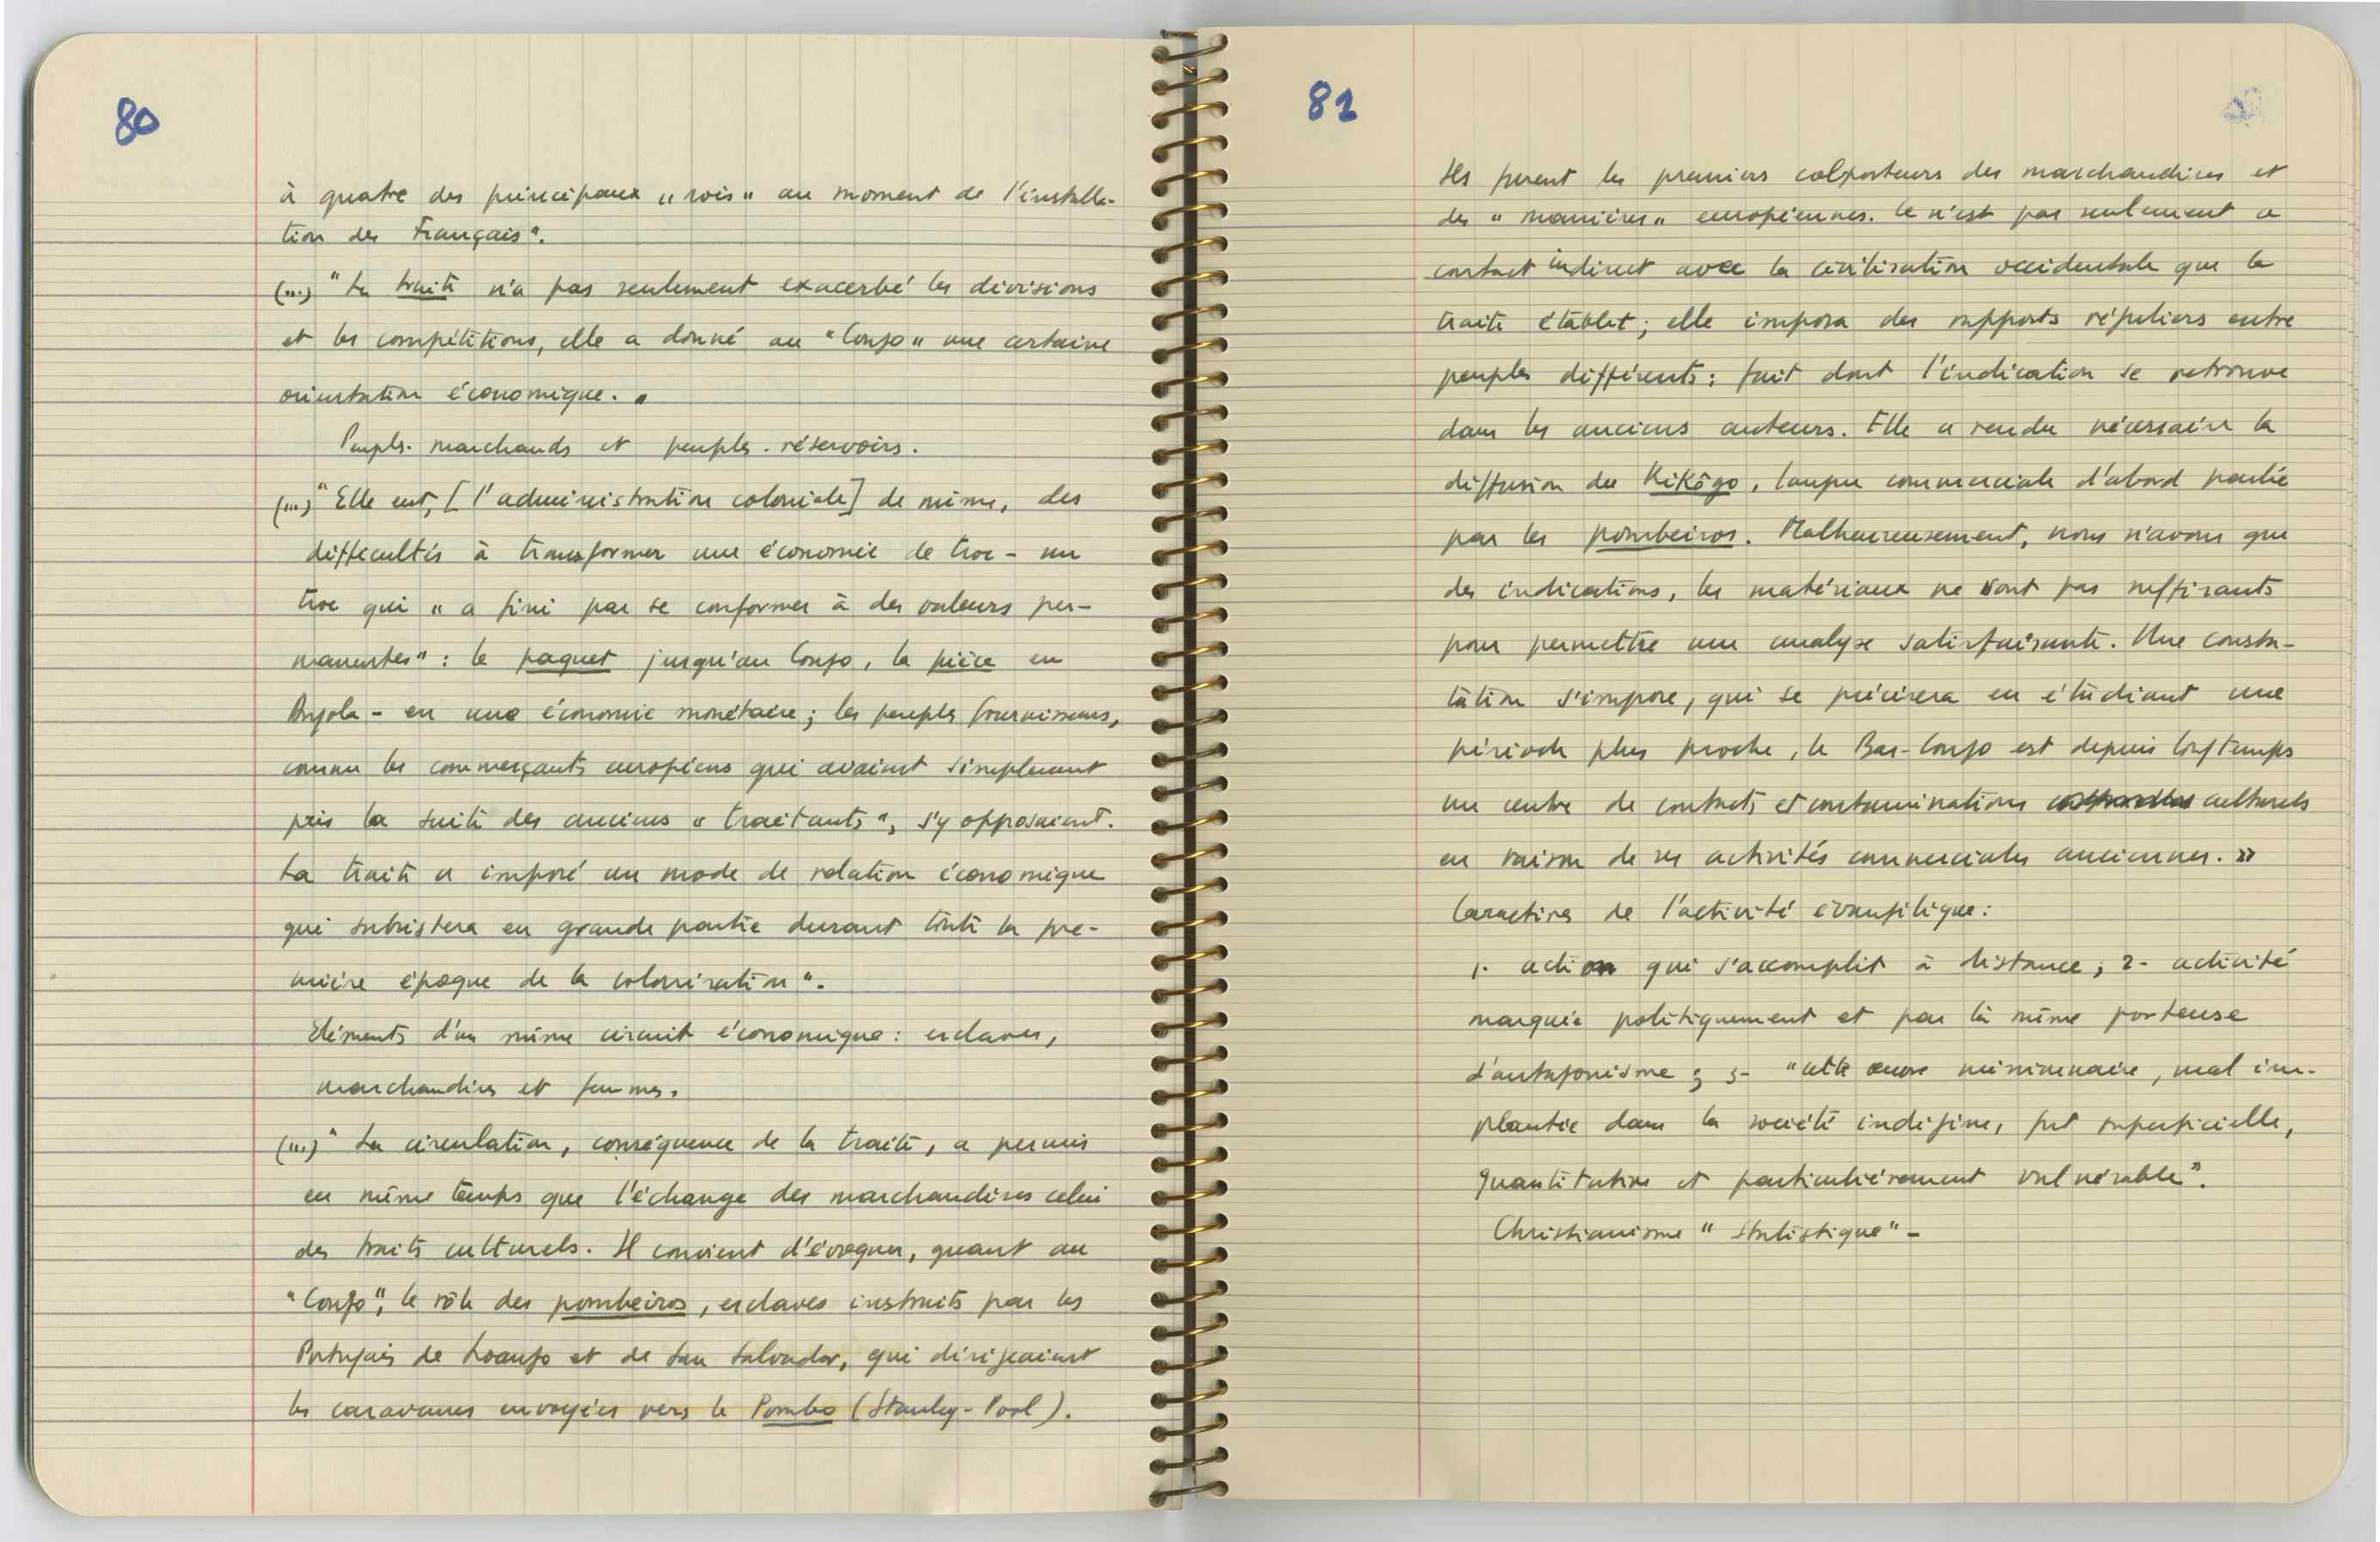 80
à quatre des principaux "rois" au moment de l'installa-
tion des Français".
(...) "La traite n'a pas seulement exacerbé les divisions
et les compétitions, elle a donné au "Congo" une certaine
orientation économique."
Peuples-marchands et peuples-réservoirs.
(...) "Elle eut, [l'administration coloniale] de même, des
difficultés à transformer une économie de troc - un
troc qui "a fini par se conformer à des valeurs per-
manentes" : le paquet jusqu'au Congo, la pièce en
Angola - en une économie monétaire; les peuples fournisseurs,
comme les commerçants européens qui avaient simplement
pris la suite des anciens "traitants", s'y opposaient.
La traite a imposé un mode de relation économique
qui subsistera en grande partie durant toute la pre-
mière époque de la colonisation".
Eléments d'un même circuit économique: esclaves,
marchandises et femmes.
(...) "La circulation, conséquence de la traite, a permis
en même temps que l'échange des marchandises celui
des traits culturels. Il convient d'évoquer, quant au
"Congo", le rôle des pombeiros, esclaves instruits par les
Portugais de Loango et de San Salvador, qui dirigeaient
les caravanes envoyées vers le Pombo (Stanley-Pool).
81
Ils furent les premiers colporteurs des marchandises et
des "manières" européennes. Ce n'est pas seulement ce
contact indirect avec la civilisation occidentale que la
traite établit; elle imposa des rapports réguliers entre
peuples différents: fait dont l'indication se retrouve
dans les anciens auteurs. Elle a rendu nécessaire la
diffusion du Kikôgo, langue commerciale d'abord parlée
par les pombeiros. Malheureusement, nous n'avons que
des indications, les matériaux ne sont pas suffisants
pour permettre une analyse satisfaisante. Une consta-
tation s'impose, qui se précisera en étudiant une
période plus proche, le Bas-Congo est depuis longtemps
un centre de contacts et contaminations culturels
en raison de ses activités commerciales anciennes."
Caractères de l'activité évangélique:
1- action qui s'accomplit à distance; 2- activité
marquée politiquement et par là même porteuse
d'antagonisme; 3- "cette œuvre missionnaire, mal im-
plantée dans la société indigène, fut superficielle,
quantitative et particulièrement vulnérable".
Christianisme "statistique"-